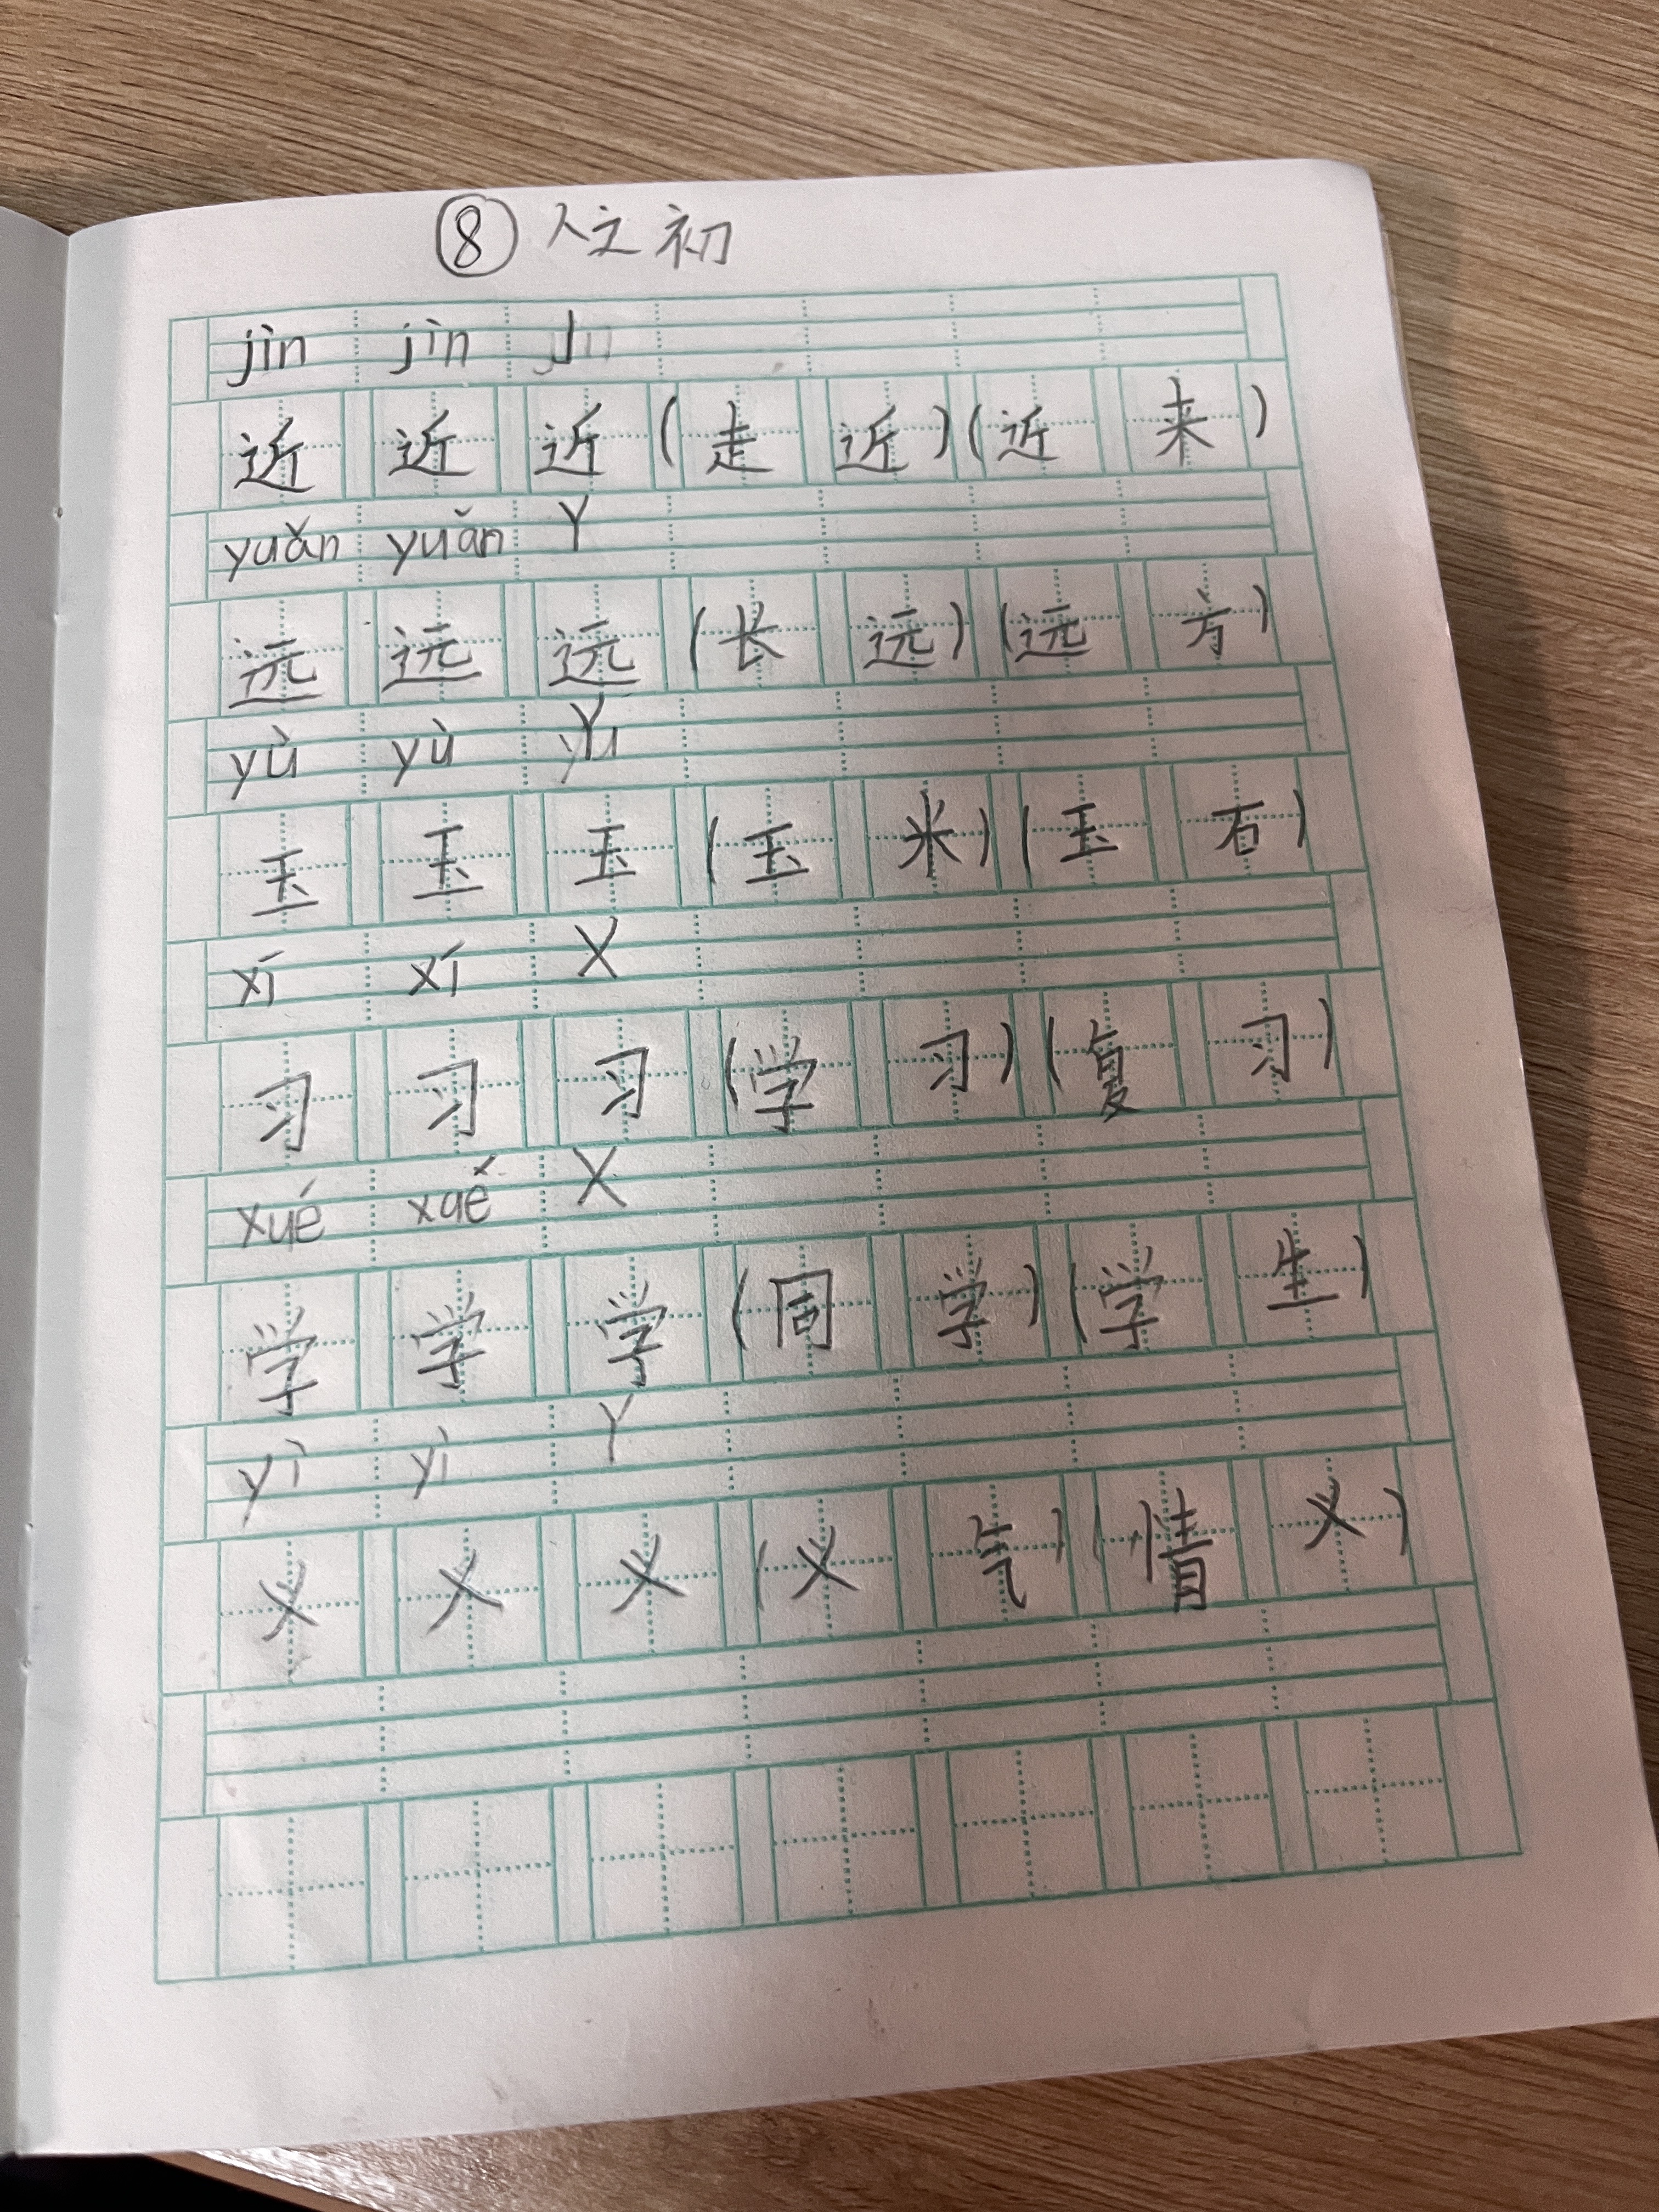 ⑧ 人之初
jìn jìn J
近 近 近 (走 近) (近 来)
yuǎn yuǎn Y
远 远 远 (长 远) (远 方)
yù yù Y
玉 玉 玉 (玉 米) (玉 石)
xí xí X
习 习 习 (学 习) (复 习)
xué xué X
学 学 学 (同 学) (学 生)
yì yì Y
义 义 义 (义 气) (情 义)